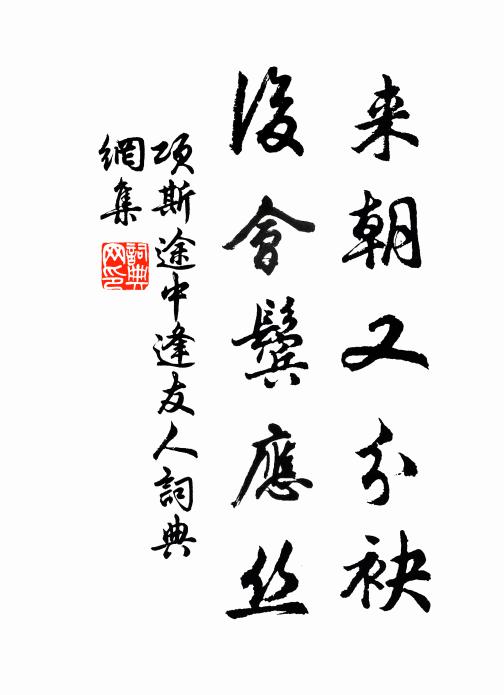 来朝又分袂
後會鬓應丝
项斯途中逢友人詞典
網集
詞典
网印